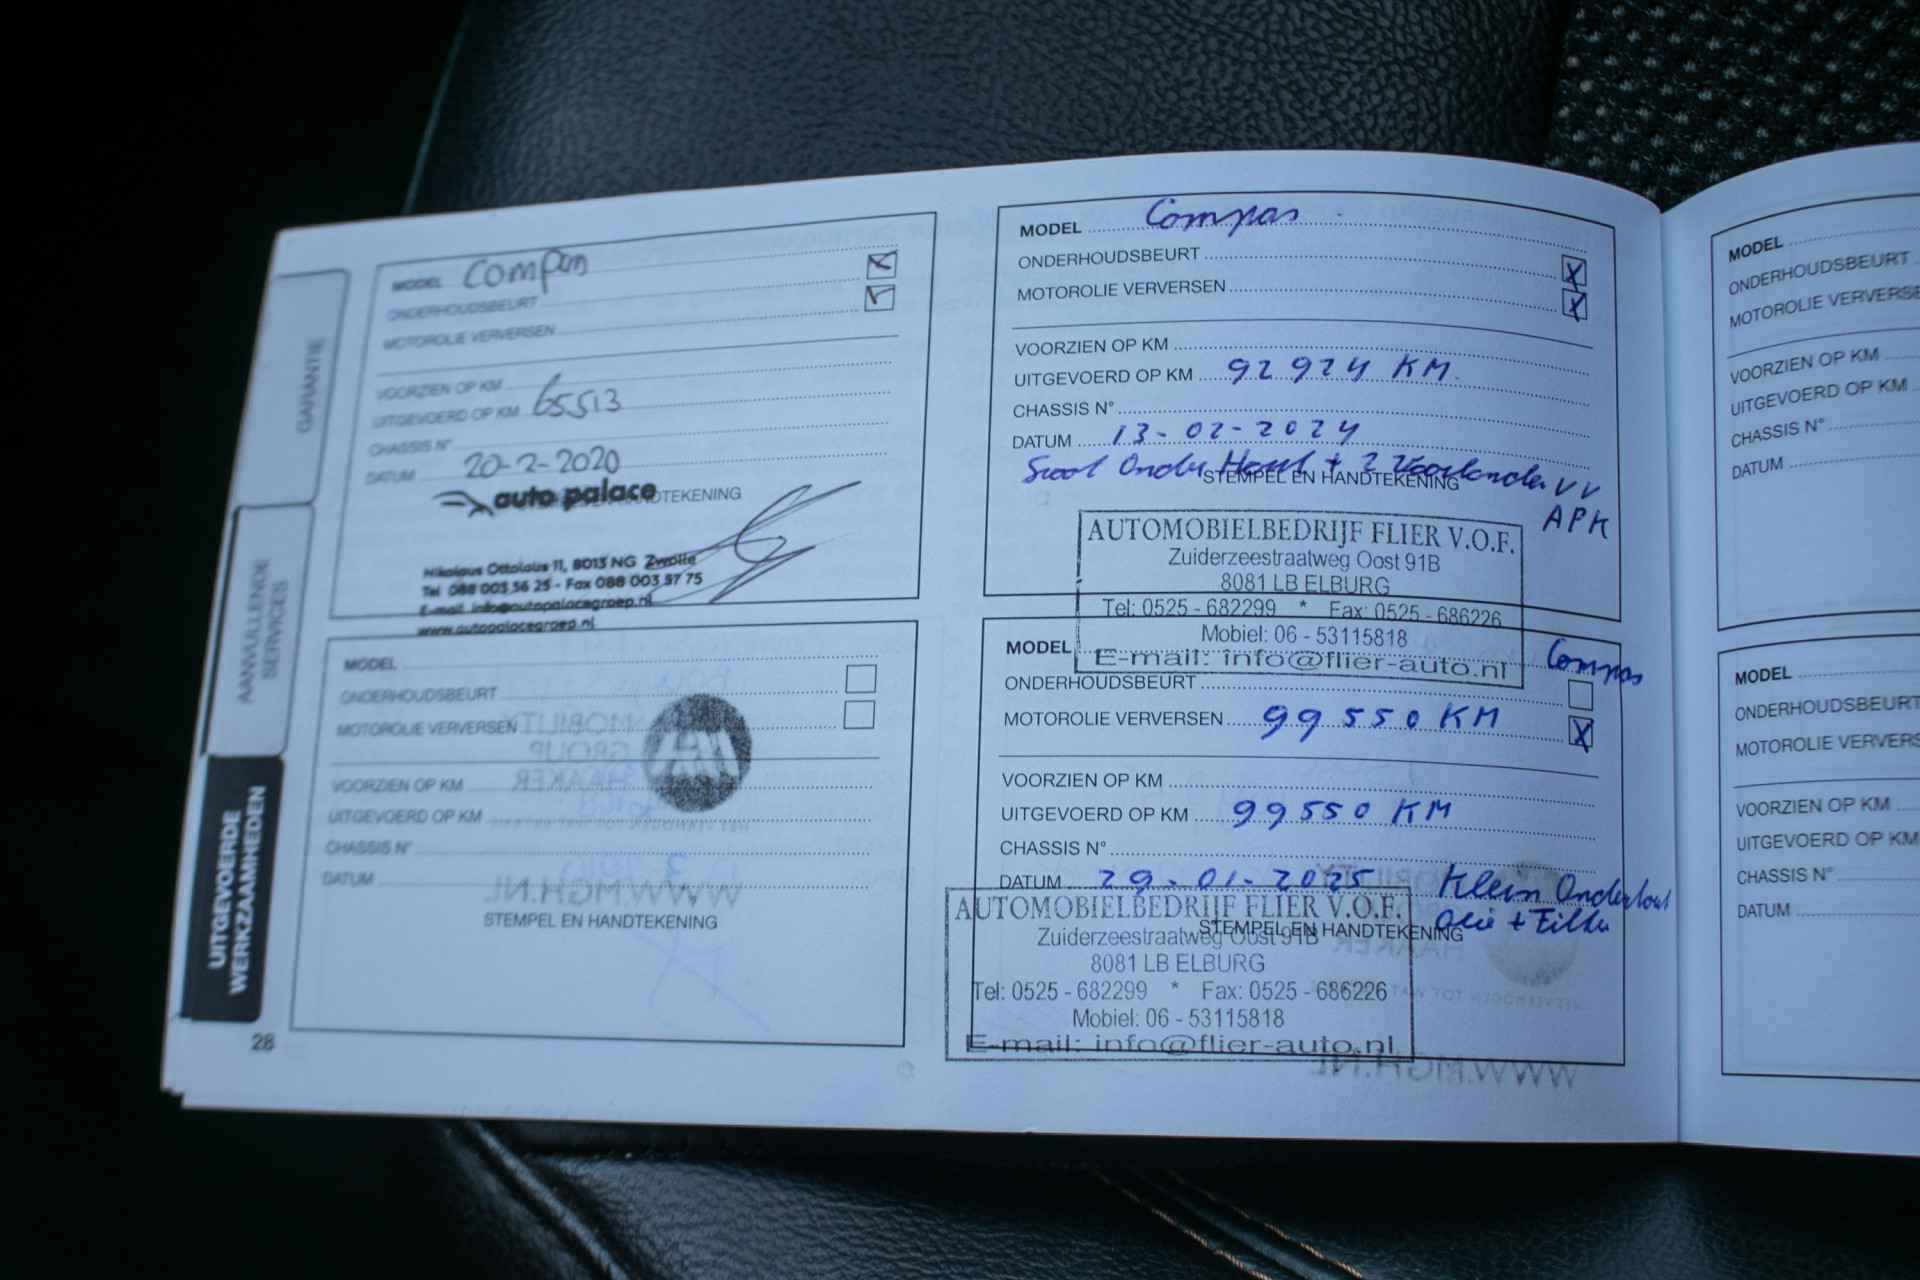 GARANTIE
AANVULLENDE
SERVICES
UITGEVOERDE
WERKZAAMHEDEN
28
MODEL Compas
ONDERHOUDSBEURT
MOTOROLIE VERVERSEN
VOORZIEN OP KM
UITGEVOERD OP KM 65513
CHASSIS N°
DATUM 20-2-2020
auto palace
Nikolaus Ottolaus 11, 8013 NG Zwolle
Tel 088 003 56 25 - Fax 088 003 57 75
E-mail info@autopalacegroep.nl
www.autopalacegroep.nl
MODEL
ONDERHOUDSBEURT
MOTOROLIE VERVERSEN
VOORZIEN OP KM
UITGEVOERD OP KM
CHASSIS N°
DATUM
STEMPEL EN HANDTEKENING
MODEL Compas
ONDERHOUDSBEURT X
MOTOROLIE VERVERSEN X
VOORZIEN OP KM
UITGEVOERD OP KM 92924 KM
CHASSIS N°
DATUM 13-02-2024
STEMPEL EN HANDTEKENING
APK
AUTOMOBIELBEDRIJF FLIER V.O.F.
Zuiderzeestraatweg Oost 91B
8081 LB ELBURG
Tel: 0525 - 682299 * Fax: 0525 - 686226
Mobiel: 06 - 53115818
E-mail: info@flier-auto.nl
MODEL Compas
ONDERHOUDSBEURT
MOTOROLIE VERVERSEN 99550 KM X
VOORZIEN OP KM
UITGEVOERD OP KM 99550 KM
CHASSIS N°
DATUM 29-01-2025 Klein Onderhout
STEMPEL EN HANDTEKENING olie + Filter
AUTOMOBIELBEDRIJF FLIER V.O.F.
Zuiderzeestraatweg Oost 91B
8081 LB ELBURG
Tel: 0525 - 682299 * Fax: 0525 - 686226
Mobiel: 06 - 53115818
E-mail: info@flier-auto.nl
MODEL
ONDERHOUDSBEURT
MOTOROLIE
VOORZIEN OP KM
UITGEVOERD OP KM
CHASSIS N°
DATUM
MODEL
ONDERHOUDSBEURT
MOTOROLIE
VOORZIEN OP KM
UITGEVOERD OP KM
CHASSIS N°
DATUM